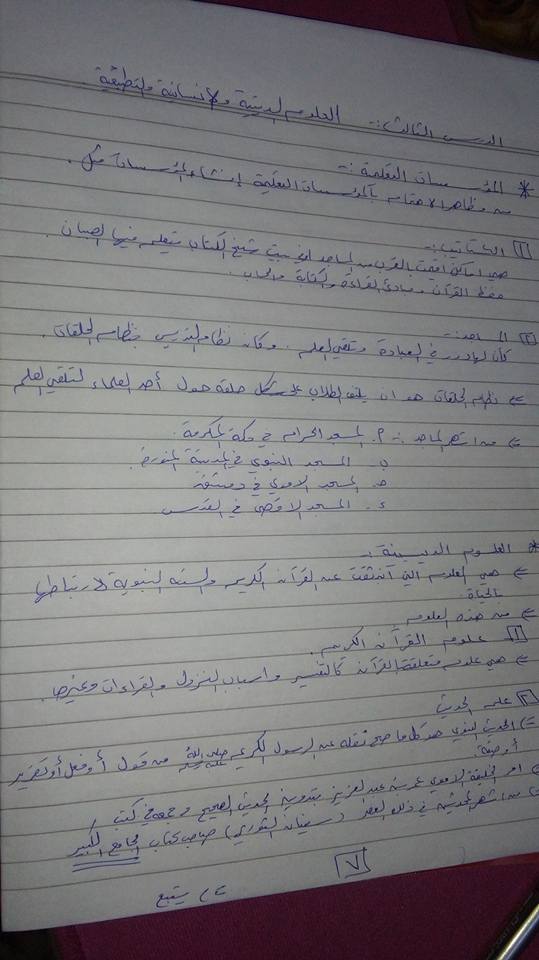 الدرس الثالث :- العلوم الدينية والإنسانية والتطبيقية
* المؤسسات التعلمية :-
من مظاهر الاهتمام بالمؤسسات التعلمية إنشاء المؤسسات مثل .
١ الكتاتيب :-
هي اماكن اقيمت بالقرب من المساجد او في بيت شيخ الكتاب يتعلم فيها الصبيان
حفظ القرآن ومبادئ القراءة والكتابة والحساب .
٢ المساجد :-
كان لها دور في العبادة وتلقي العلم . وكان نظام التدريس بنظام الحلقات .
<= نظام الحلقات هو ان يلتف الطلاب على شكل حلقة حول أحد العلماء لتلقي العلم
<= من اشهر المساجد :- أ. المسجد الحرام في مكة المكرمة .
ب. المسجد النبوي في المدينة المنورة .
جـ. المسجد الاموي في دمشق
د. المسجد الاقصى في القدس
* العلوم الدينية :-
<= هي العلوم التي انبثقت عن القرآن الكريم والسنه النبوية لارتباطها
بالحياة .
<= من هذه العلوم
١ علوم القرآن الكريم .
<= هي علوم متعلقة القرآن كالتفسير واسباب النزول والقراءات وغيرها .
٢ علم الحديث
<= الحديث النبوي هو كل ما صح نقله عن الرسول الكريم صلى الله عليه وسلم من قول أو فعل أو تقرير
أو صفة
امر الخليفة الاموي عمر بن عبد العزيز بتدوين الحديث الصحيح وجمعه في كتب ,
من اشهر المحدثين في ذلك العصر (سفيان الثوري) صاحب كتاب الجامع الكبير
٧
<= يتبع